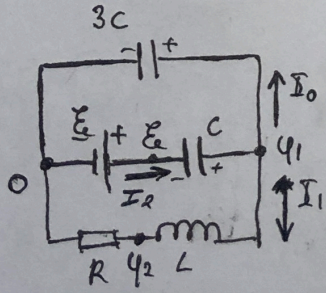 3C
- +
I₀
ℰ + ℰ C
φ₁
0 I₂ - +
I₁
R φ₂ L